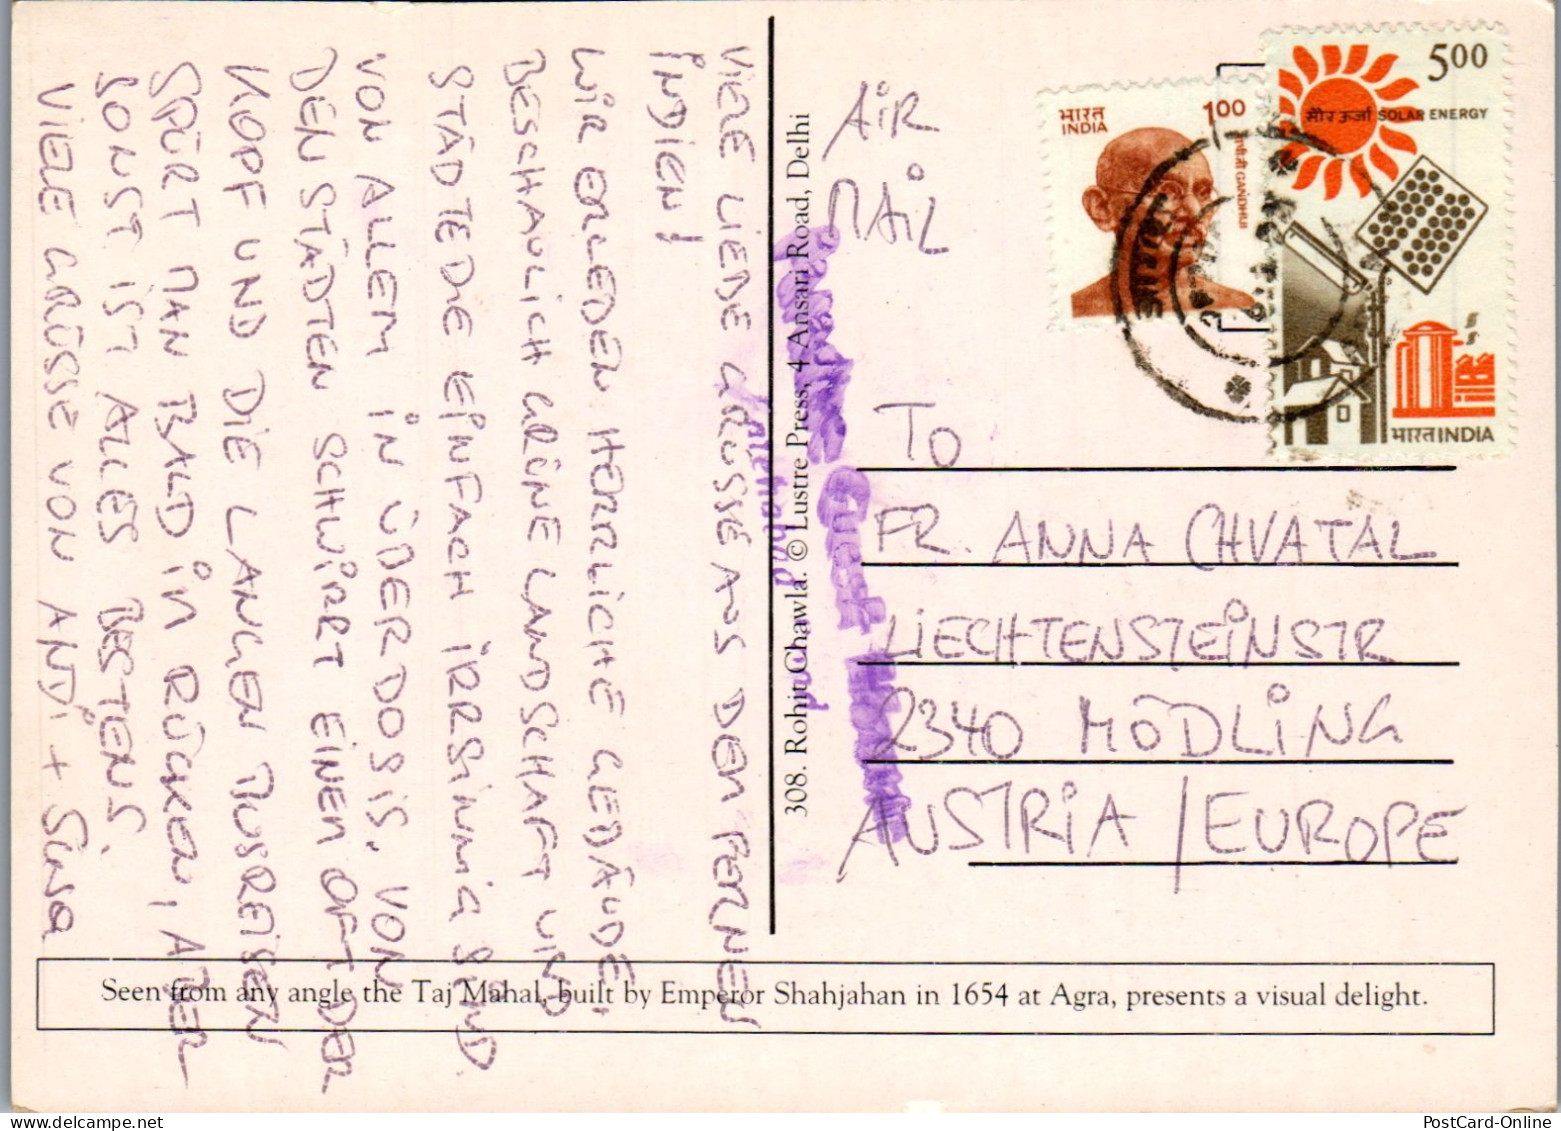 VIELE LIEBE GRÜSSE AUS DEM FERNEN
INDIEN!
WIR ERLEBEN HERRLICHE GEBÄUDE,
BESCHAULICH GRÜNE LANDSCHAFT UND
STÄDTE DIE EINFACH IRRSINNIG SIND.
VON ALLEM IN ÜBERDOSIS, VON
DEN STÄDTEN SCHWIRT EINEM OFT DER
KOPF UND DIE LANGEN BUSREISEN
SPÜRT MAN BALD IM RÜCKEN, ABER
SONST IST ALLES BESTENS.
VIELE GRÜSSE VON ANDI + Sina
308. Rohit Chawla. © Lustre Press, 4 Ansari Road, Delhi
AIR
MAIL
भारत
INDIA
1.00
गांधीजी GANDHIJI
5.00
सौर ऊर्जा SOLAR ENERGY
भारत INDIA
TO
FR. ANNA CHVATAL
LIECHTENSTEINSTR
2340 MÖDLING
AUSTRIA / EUROPE
Seen from any angle the Taj Mahal, built by Emperor Shahjahan in 1654 at Agra, presents a visual delight.
PostCard-Online